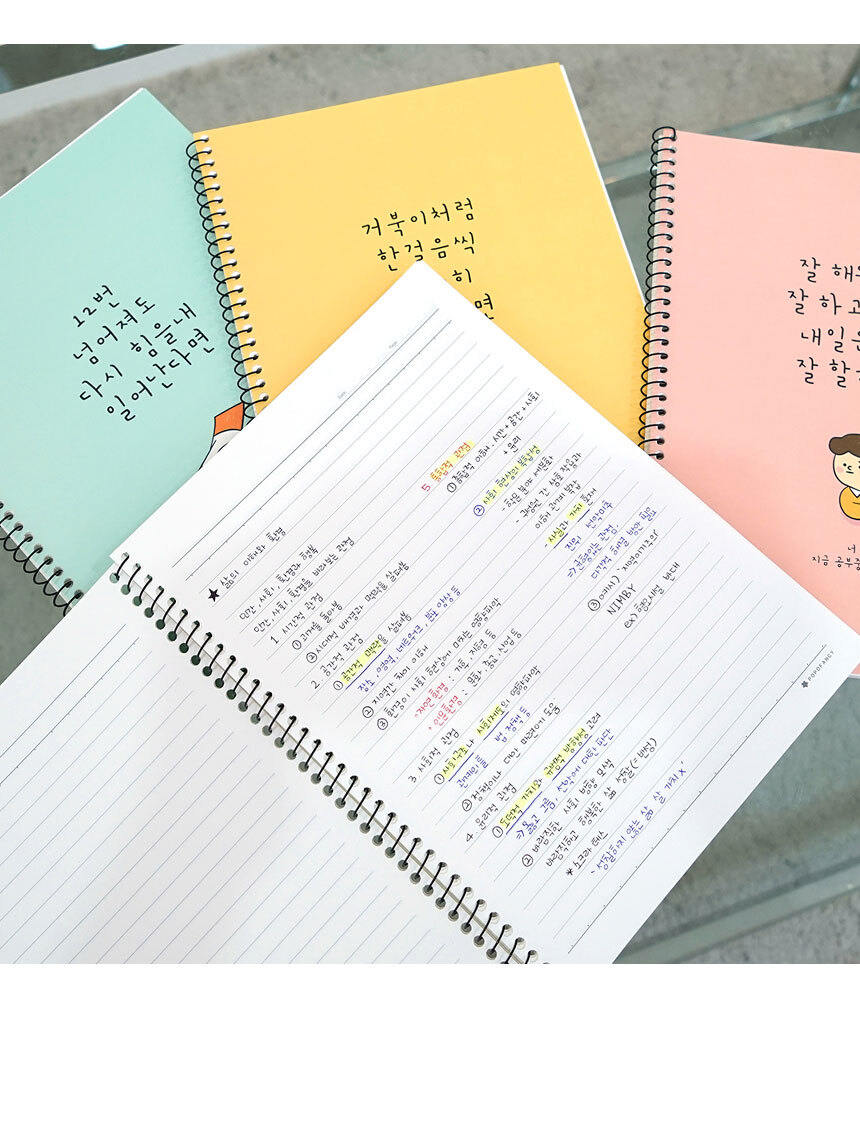 12번
넘어져도
다시 힘을내
일어난다면
거북이처럼
한걸음씩
히
면
잘 해
잘 하고
내일은
잘 할
나
지금 공부중
Date.
Page.
★ 삶의 이해와 환경
인간, 사회, 환경과 행복
인간, 사회, 환경을 바라보는 관점
1. 시간적 관점
① 과거를 돌아봄
② 시대적 배경과 맥락을 살펴봄
2. 공간적 관점
① 공간적 맥락을 살펴봄
장소, 영역, 네트워크, 분포 양상 등
② 지역간 차이 이해
③ 환경이 사회 현상에 미치는 영향파악
· 자연환경 : 기후, 지형 등
· 인문환경 : 문화, 종교, 산업 등
3. 사회적 관점
① 사회구조나 사회제도의 영향파악
관계의 틀 법, 정책 등
② 정책이나 대안 마련에 도움
4. 윤리적 관점
① 도덕적 가치와 규범적 방향성 고려
⇒ 옳고 그름, 선악에 대한 판단
② 바람직한 사회 방향 모색
바람직하고 행복한 삶 성찰(=반성)
* 소크라테스
- 성찰하지 않는 삶 살 가치 X'
5. 통합적 관점
① 통합적 이해 - 시간 + 공간 + 사회
+ 윤리
② 사회 현상의 복합성
- 학문 분야 세분화
- 구성원 간 상호작용과
이해 관계 복잡
- 사실과 가치 문제
진위 선악미추
⇒ 균형있는 관점,
다각적 해결 방안 필요
③ 예시) '지역이기주의'
NIMBY
ex) 혐오시설 반대
★ POPOFANCY